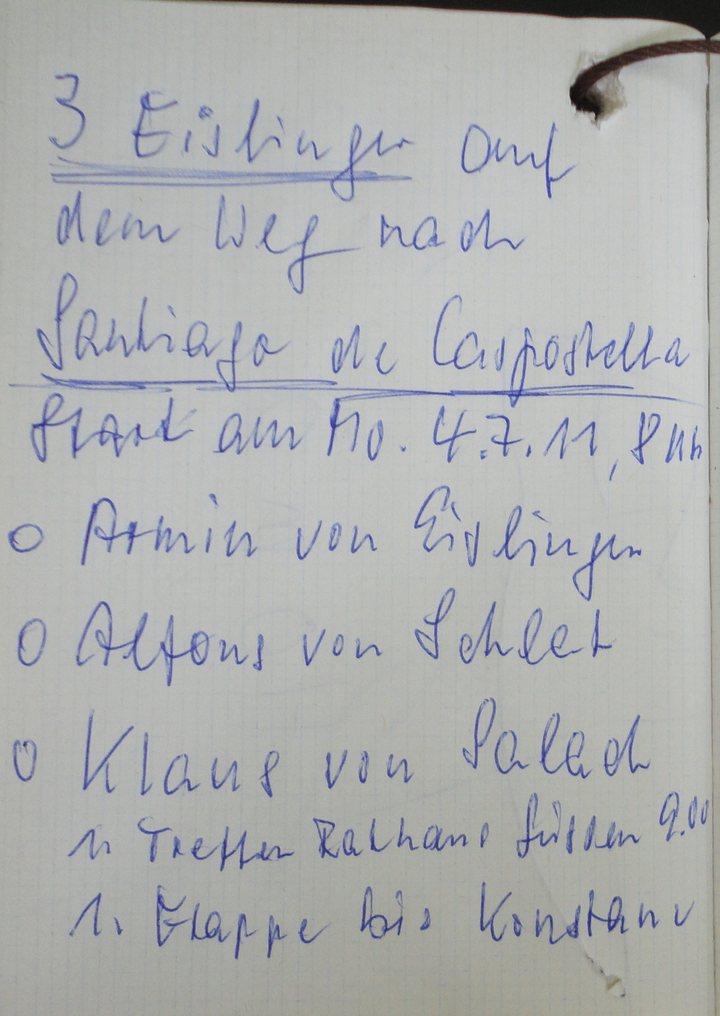 3 Eislinger auf
dem Weg nach
Santiago de Compostella
Start am Mo. 4.7.11, 8 Uh
o Armin von Eislingen
o Alfons von Schlat
o Klaus von Salach
1. Treffen Rathaus Süssen 9.00
1. Etappe bis Konstanz